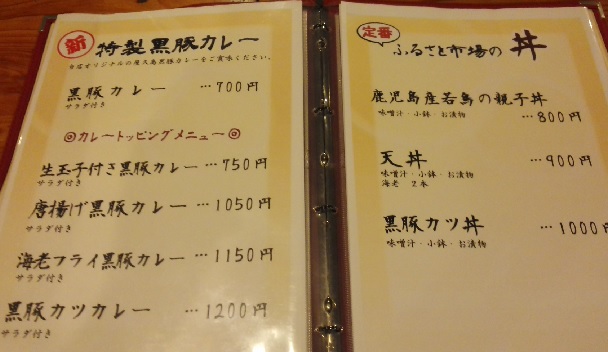 新 特製黒豚カレー
当店オリジナルの屋久島黒豚カレーをご賞味ください。
黒豚カレー …700円
サラダ付き
◎カレートッピングメニュー◎
生玉子付き黒豚カレー …750円
サラダ付き
唐揚げ黒豚カレー …1050円
サラダ付き
海老フライ黒豚カレー …1150円
サラダ付き
黒豚カツカレー …1200円
サラダ付き
定番 ふるさと市場の 丼
鹿児島産若鳥の親子丼
味噌汁・小鉢・お漬物 …800円
天丼 …900円
味噌汁・小鉢・お漬物
海老 2本
黒豚カツ丼 …1000円
味噌汁・小鉢・お漬物